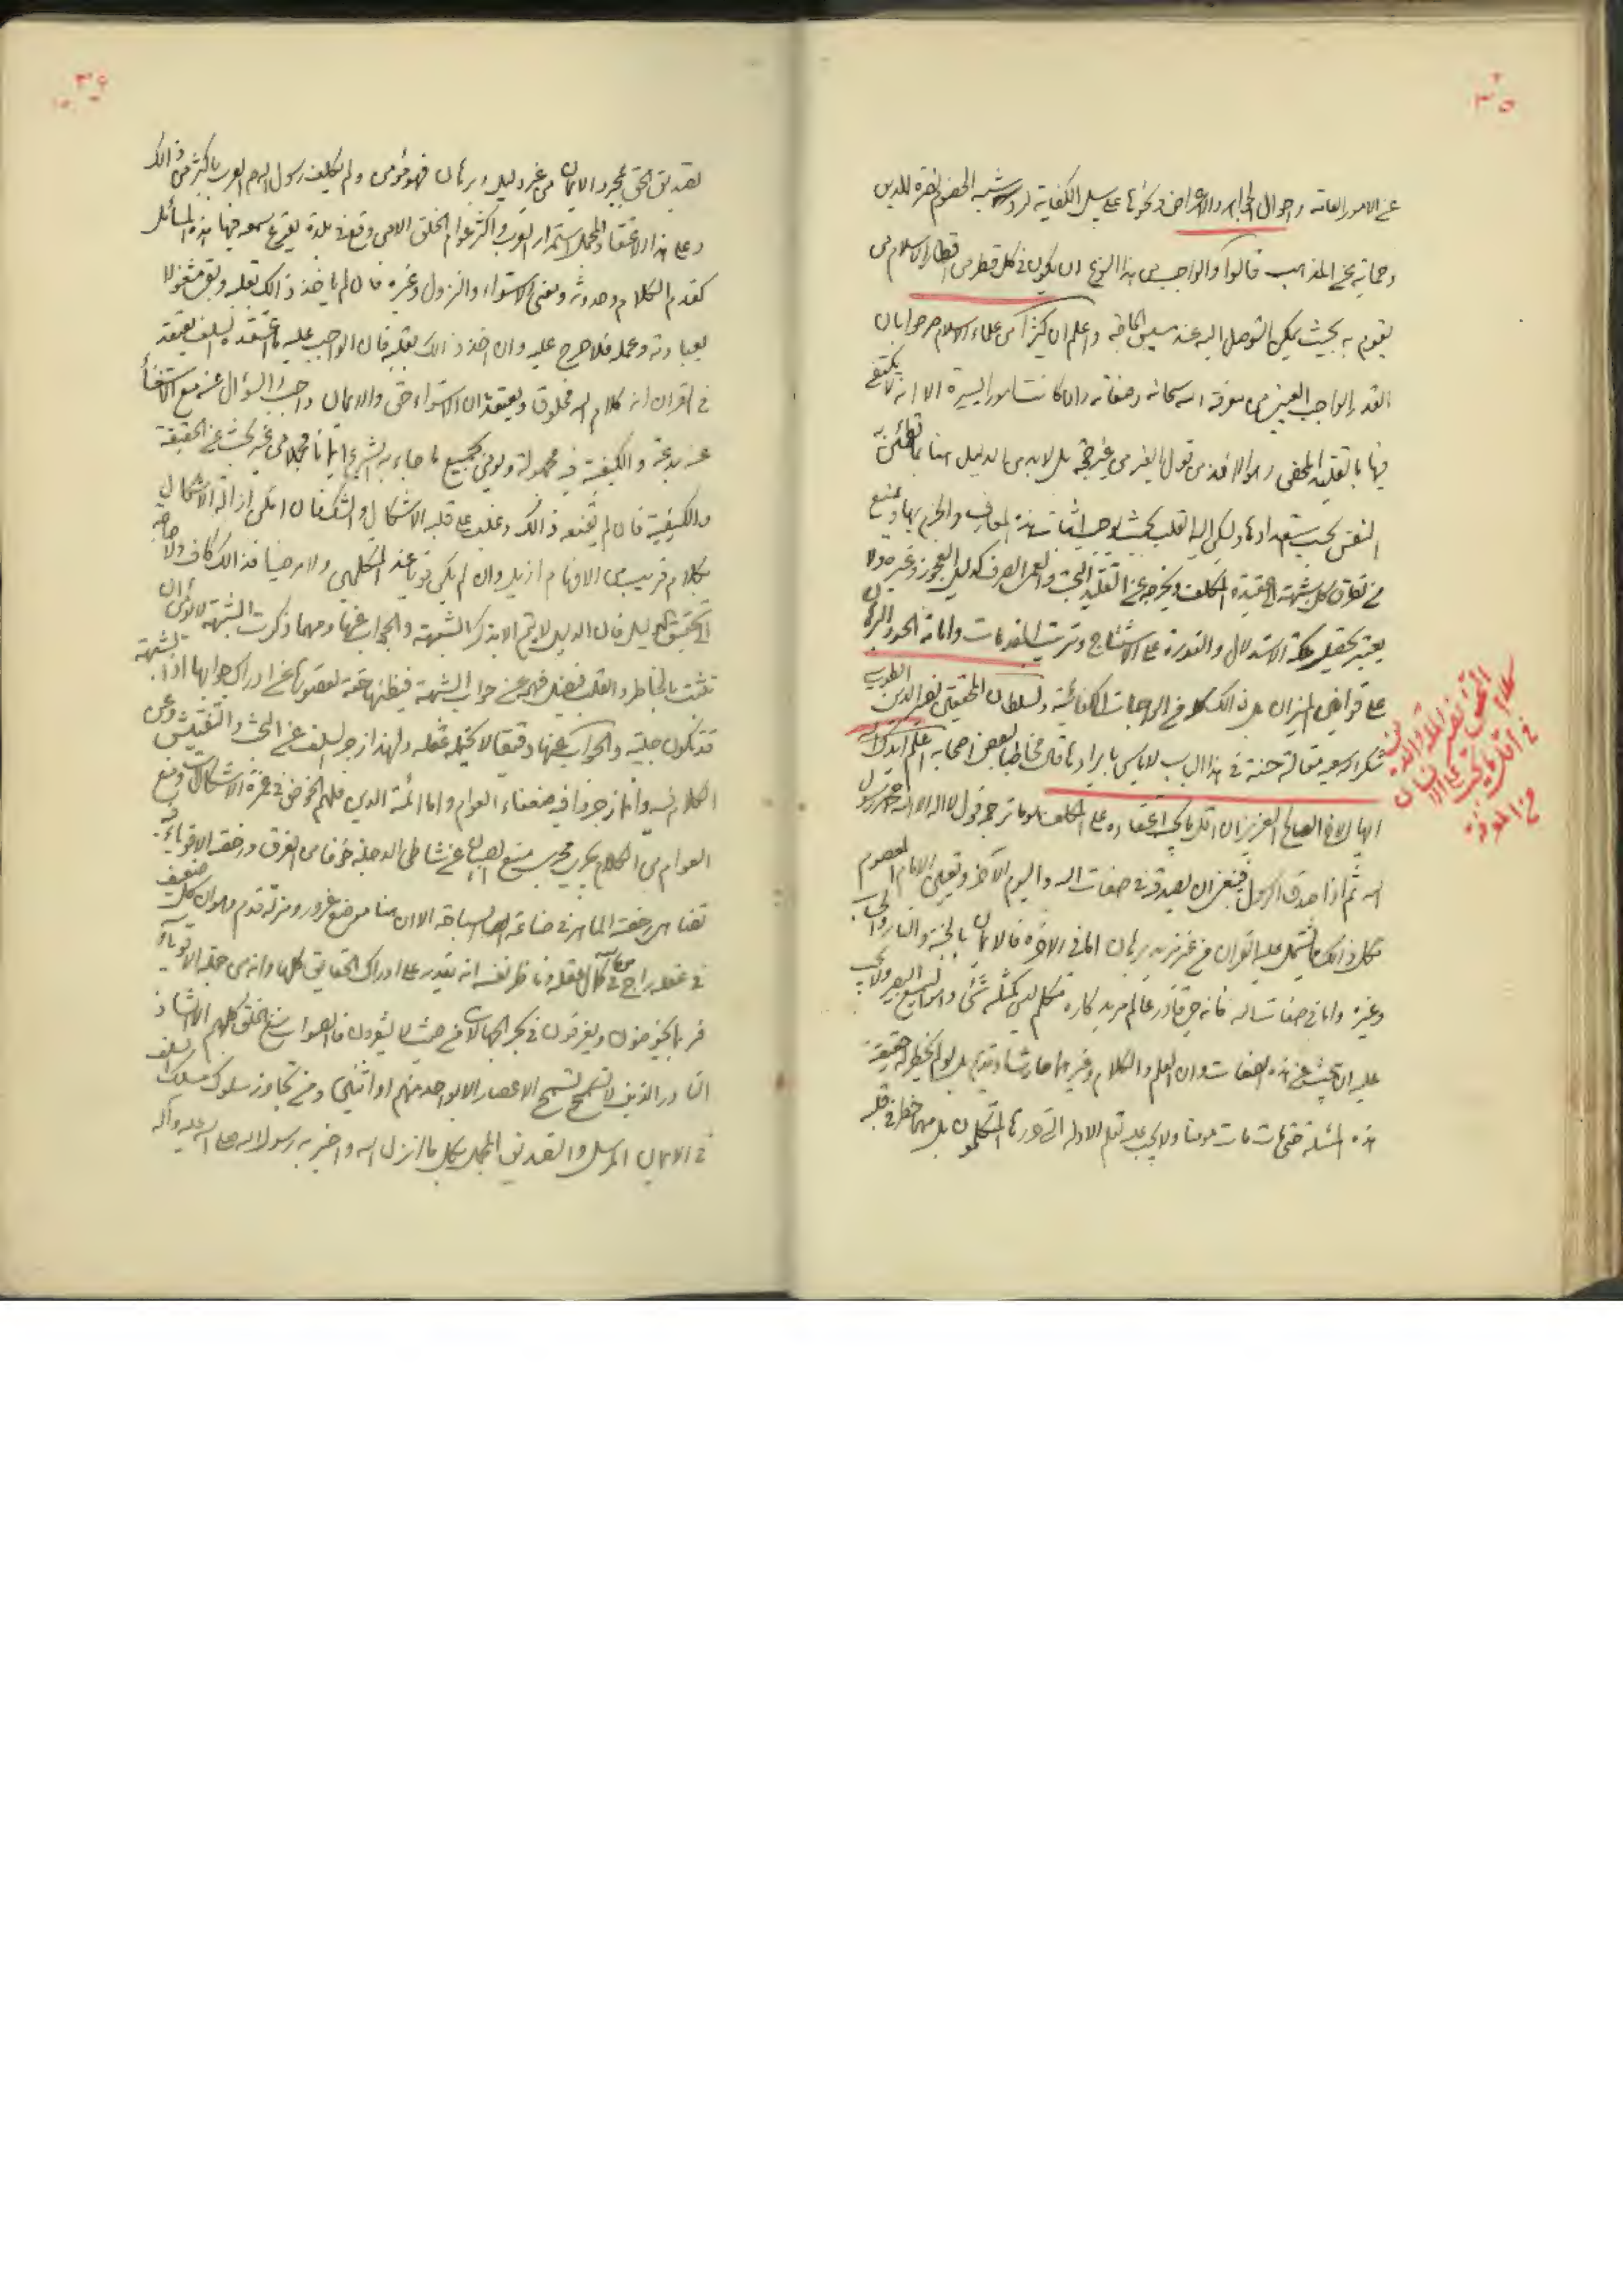 ٣٥
عن الامور العامة واحوال الجواهر والاعراض ونحوها على سبيل الكفاية لرد شبه الخصوم نصرة للدين
وحماية عن المذاهب قالوا والواجب من هذا النوع ان يكون في كل قطر من اقطار الاسلام من
يقوم به بحيث يمكن التوصل اليه عند مسيس الحاجة واعلم ان كثيرا من علماء الاسلام صرحوا بان
القدر الواجب العيني من معرفة الله سبحانه وصفاته وان كانت امور ايسيرة الا انه لا يكتفى
فيها بالتقليد المحض وهو الاخذ من قول الغير من غير حجة بل لابد من الدليل هنا بما تطمئن به
النفس بحسب استعدادها ويسكن اليه القلب بحيث يوجب اثبات هذه المعارف والجزم بها ويمنع
من تطرق كل شبهة الى عقيدة المكلف ويخرجه عن التقليد البحت والعمى الصرف كدليل العجوز وغيره ولا
يعتبر تحصيل ملكة الاستدلال والقدرة على الاستنتاج وترتيب المقدمات واقامة الحدود والبرهان
على قوانين الميزان بل ذالك كله من الواجبات الكفائية ولسلطان المحققين نصير الدين الطوسي
شكر الله سعيه مقالة حسنة في هذا الباب لاباس بايرادها قال مخاطبا لبعض اصحابه اعلم ايدك الله
ايها الاخ الصالح العزيز ان اقل ما يجب اعتقاده على المكلف هو ما ترجمه قول لا اله الا الله محمد رسول
الله ثم اذا صدق الرسول فينبغي ان يصدقه في صفات الله واليوم الآخر وتعيين الامام المعصوم
فكل ذالك مما يشتمل عليه القران من غير مزيد برهان اما في الاخرة فالايمان بالجنة والنار والحساب
وغيره واما في صفات الله فانه حي قادر عالم مريد كاره متكلم ليس كمثله شئ وهو السميع البصير ولا يجب
عليه ان يبحث عن هذه الصفات وان العلم والكلام وغيرهما حادث او قديم بل لو لم يخطر له حقيقة
هذه المسئلة حتى مات مات مومنا ولا يجب عليه تعلم الادلة التي حررها المتكلمون بل مهما خطر في قلبه
كلام المحقق نصير الملة والدين
في اقل ما يجب على الانسان
من المعرفة
٣٦
تصديق الحق بمجرد الايمان من غير دليل وبرهان فهو مؤمن ولم يكلف رسول الله العرب باكثر من ذالك
وعلى هذا الاعتقاد المجمل استمرار العرب واكثر عوام الخلق الا من وقع في بلدة يقرع سمعه فيها هذه المسائل
كقدم الكلام وحدوثه ومعنى الاستواء والنزول وغيره فان لم ياخذ ذالك بقلبه وبقى مشغولا
بعبادته وعمله فلا حرج عليه وان اخذ ذالك بقلبه فان الواجب عليه ما اعتقده السلف يعتقد
في القران انه كلام الله مخلوق ويعتقد ان الاستواء حق والايمان به واجب والسؤال عنه مع الاستغناء
عنه بدعة والكيفية فيه مجهولة ويومن بجميع ما جاء به الشرع ايمانا مجملا من غير بحث عن الحقيقة
والكيفية فان لم يقنعه ذالك وغلب على قلبه الاشكال والشك فان امكن ازالة الاشكال
بكلام قريب من الافهام ازيل وان لم يكن قويا عند المتكلمين ولا مرضيا فذالك كاف ولا حاجة
الى تحقيق الدليل فان الدليل لا يتم الا بذكر الشبهة والجواب عنها ومهما ذكرت الشبهة لا يؤمن ان
تتشبث بالخاطر والقلب فيضل فهمه عن جواب الشبهة فيظنها حقة لقصوره عن ادراك جوابها اذ الشبهة
قد تكون جلية والجواب عنها دقيقا لا يحتمله عقله ولهذا زجر السلف عن البحث والتفتيش وعن
الكلام فيه وانما زجروا فيه ضعفاء العوام واما ائمة الدين فلهم الخوض في غمرة الاشكالات ومنع
العوام من الكلام يجرى مجرى منع الصبيان عن شاطئ الدجلة خوفا من الغرق ورخصة الاقوياء فيه
تضاهى رخصة الماهر في صناعة السباحة الا ان هنا موضع غرور ومزلة قدم وهو ان كل ضعيف
في عقله راج من الله في كمال عقله وناظر نفسه انه يقدر على ادراك الحقايق كلها وانه من جملة الاقوياء
فربما يخوضون ويغرقون في بحر الجهالات من حيث لا يشعرون فالصواب منع الخلق كلهم الا الشاذ
النادر الذي لا تسمح الاعصار الا بواحد منهم او اثنين ومن تجاوز سلوك مسلك السلف
في الايمان المرسل والتصديق المجمل بكل ما انزل الله واخبر به رسول الله صلى الله عليه وآله